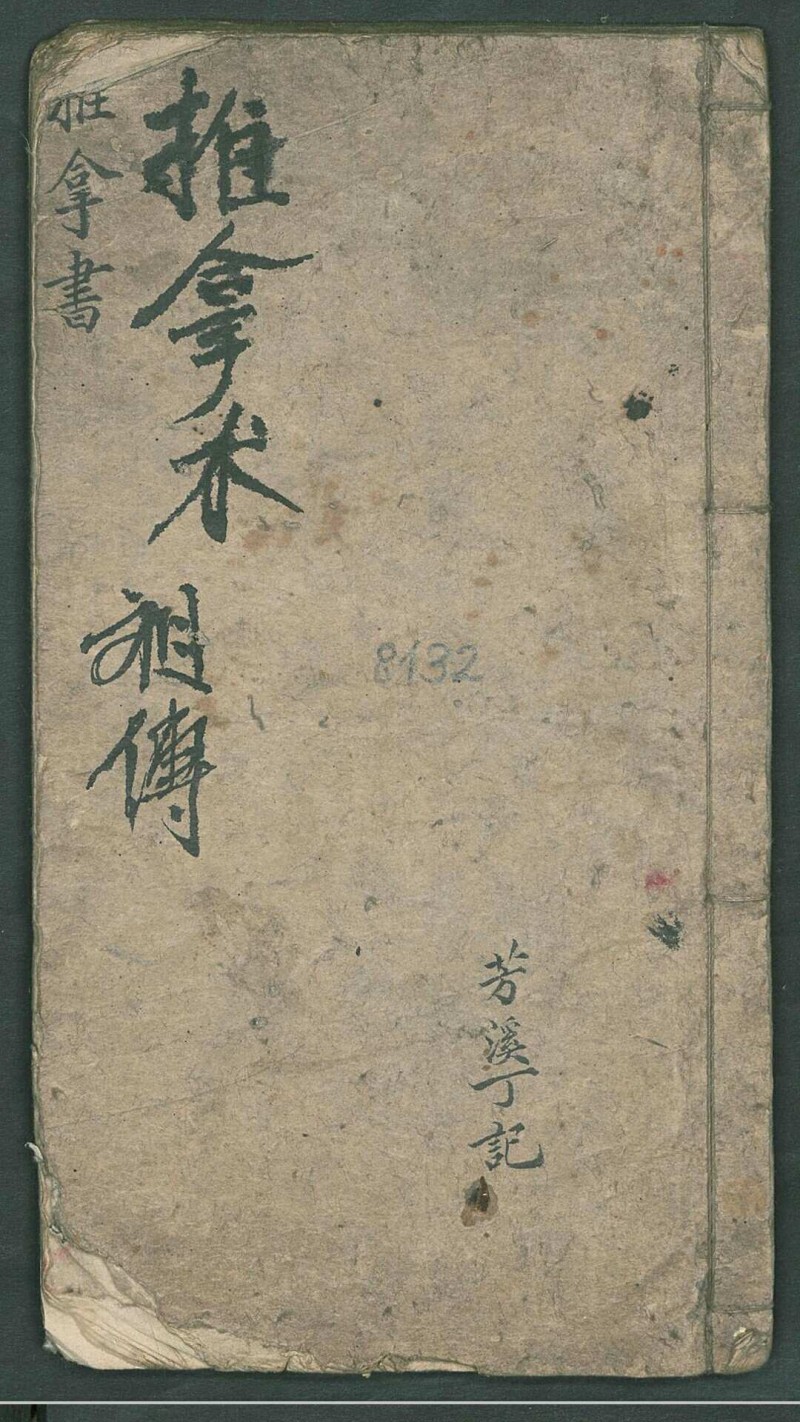 芳溪丁記
推拿术
祖傳
推拿書
8132